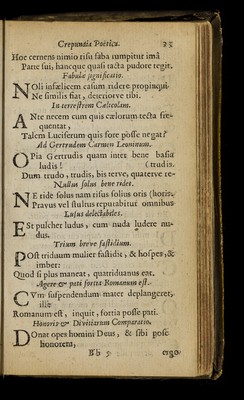 Crepuntia Poëtica. 25
Hoc cernens nimio risu faba rumpitur imâ
Parte sui, hancque quasi tacta pudore tegit.
Fabulæ significatio.
NOli infælicem casum ridere propinqui
Ne similis fiat, deteriorve tibi.
In terrestrem Cælicolam.
ANte necem cum quis cælorum tecta fre-
quentat,
Talem Luciferum quis fore posse negat?
Ad Gertrudem Carmen Leoninum.
OPia Gertrudis quam inter bene basia
ludis! (trudis.
Dum trudo, trudis, bis terve, quaterve re-
Nullus solus bene ridet.
NE ride solus nam risus solius oris (horis.
Pravus vel stultus reputabitur omnibus
Lusus delectabiles.
ESt pulcher ludus, cum nuda ludere nu-
dus.
Trium breve fastidium.
POst triduum mulier fastidit, & hospes, &
imber:
Quod si plus maneat, quatriduanus eat.
Agere & pati fortia Romanum est.
CVm suspendendum mater deplangeret,
ille
Romanum est, inquit, fortia posse pati.
Honoris & Divitiarum Comparatio.
DOnat opes homini Deus, & sibi posc
honorem,
Bb 5 ergo